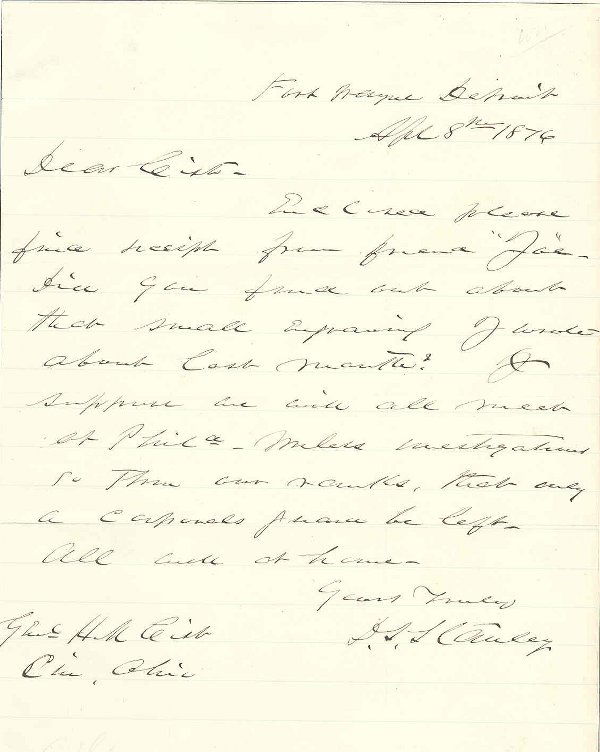 Fort Wayne Detroit
Apl 8th 1876
Dear Cist-
Enclosed please
find receipt from friend "Joe-
Did you find out about
that small engraving I wrote
about last month? I
suppose we will all meet
at Phila - Unless investigations
so thin our ranks, that only
a corporals guard be left-
All well at home-
Yours Truly
D.S. Stanley
Genl H M Cist
Cin, Ohio